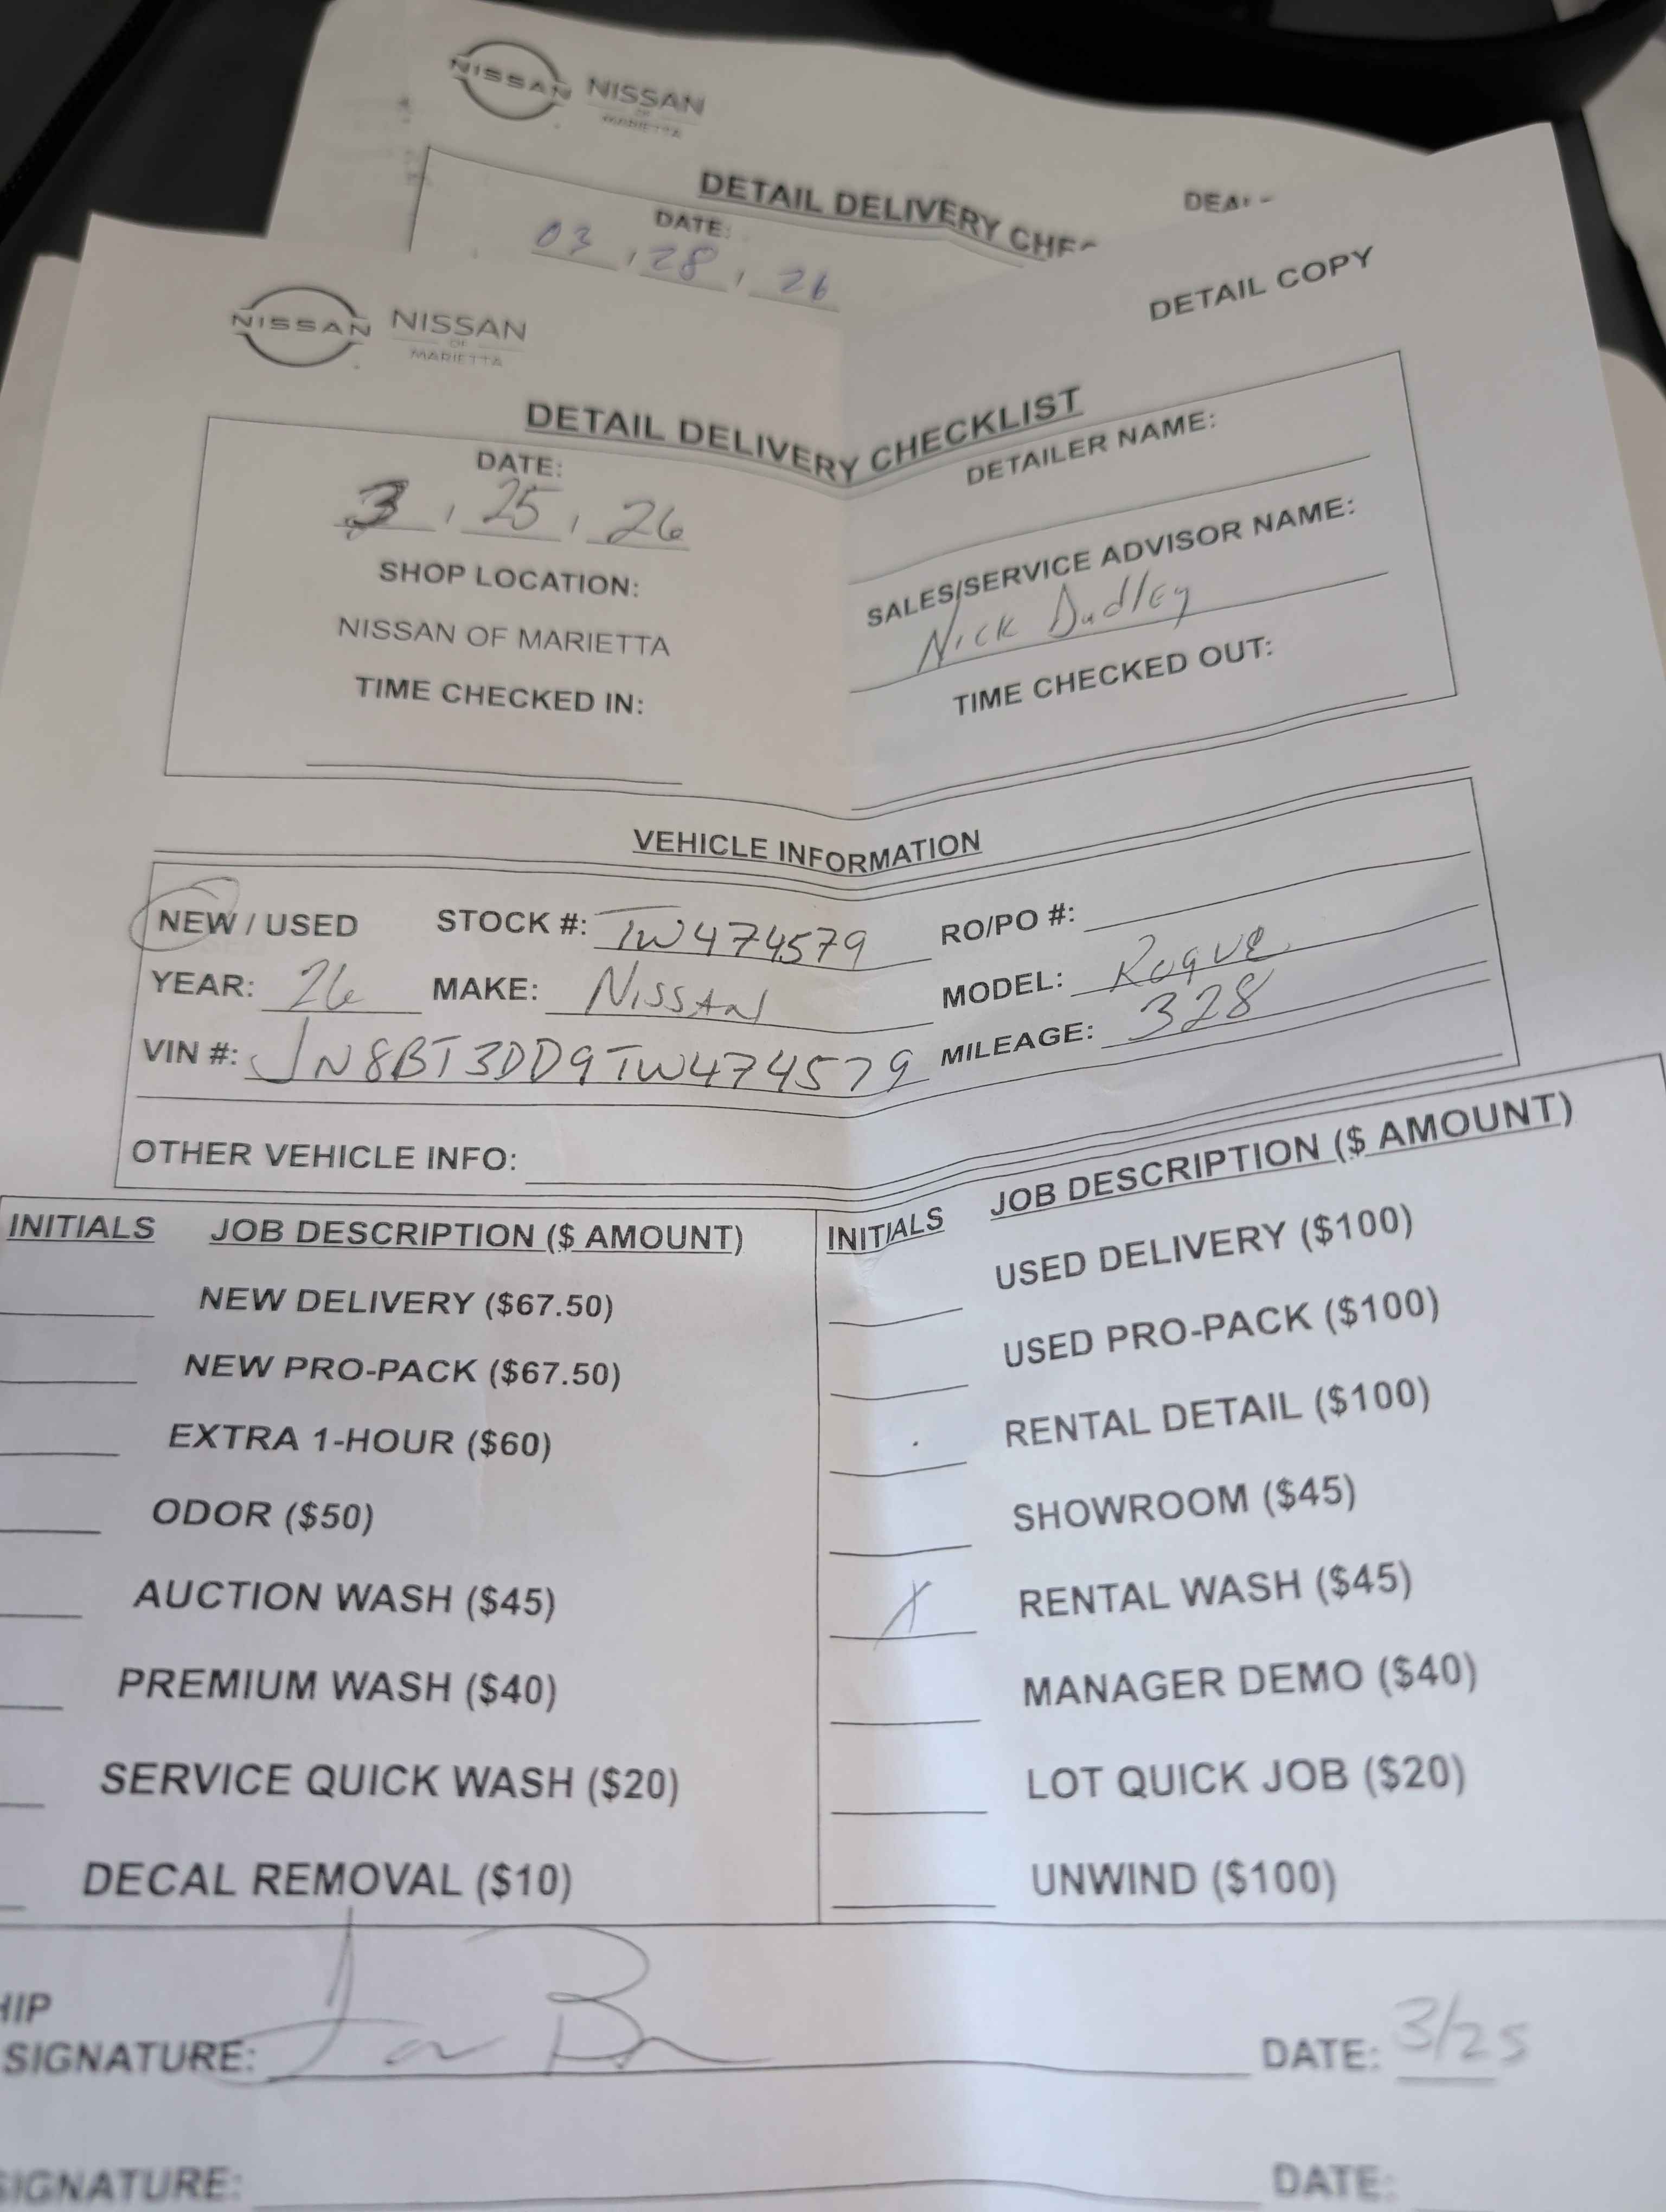 NISSAN NISSAN
OF
MARIETTA
DETAIL DELIVERY
DATE:
03, 28, 26
DETAIL COPY
NISSAN NISSAN
OF
MARIETTA
DETAIL DELIVERY CHECKLIST
DATE:
3, 25, 26
SHOP LOCATION:
NISSAN OF MARIETTA
TIME CHECKED IN:
DETAILER NAME:
SALES/SERVICE ADVISOR NAME:
Nick Dudley
TIME CHECKED OUT:
VEHICLE INFORMATION
NEW / USED STOCK #: TW474579 RO/PO #:
YEAR: 26 MAKE: NISSAN MODEL: Rogue
VIN #: JN8BT3DD9TW474579 MILEAGE: 328
OTHER VEHICLE INFO:
INITIALS JOB DESCRIPTION ($ AMOUNT)
NEW DELIVERY ($67.50)
NEW PRO-PACK ($67.50)
EXTRA 1-HOUR ($60)
ODOR ($50)
AUCTION WASH ($45)
PREMIUM WASH ($40)
SERVICE QUICK WASH ($20)
DECAL REMOVAL ($10)
INITIALS JOB DESCRIPTION ($ AMOUNT)
USED DELIVERY ($100)
USED PRO-PACK ($100)
RENTAL DETAIL ($100)
SHOWROOM ($45)
X RENTAL WASH ($45)
MANAGER DEMO ($40)
LOT QUICK JOB ($20)
UNWIND ($100)
SIGNATURE: DATE: 3/25
SIGNATURE: DATE: